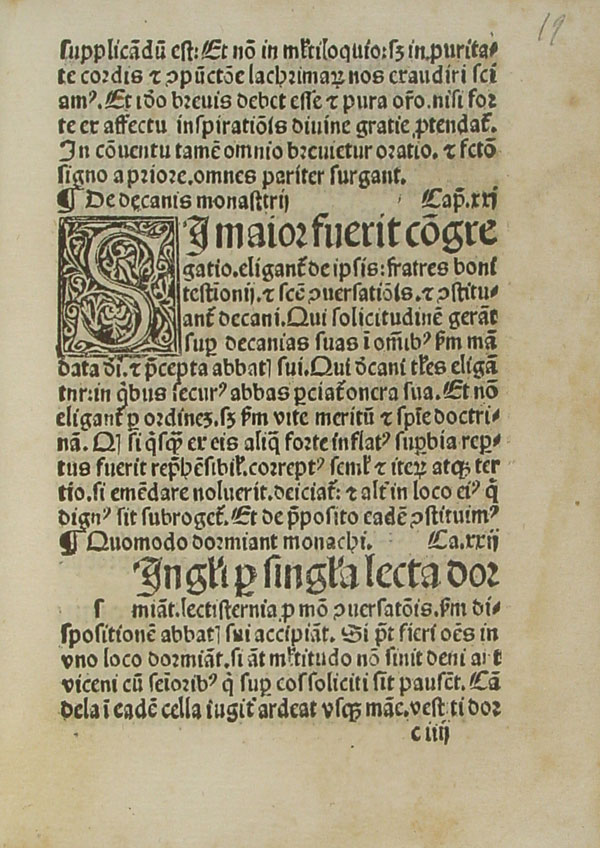 19
supplicādū est: Et nō in ml̄tiloquio: sꝫ in purita⸗
te cordis ⁊ ↄpūctōe lachrimaꝝ nos exaudiri sci
amꝰ. Et iđo breuis debet esse ⁊ pura or̄o. nisi for
te ex affectu inspiratiōis diuine gratie ꝓtendat̄.
In cōuentu tamē omnio breuietur oratio. ⁊ fctō
signo a priore. omnes pariter surgant.
¶ De decanis monastrij Cap̄. xxj
SI maior fuerit cōgre
gatio. eligant̄ de ipsis: fratres boni
testionij. ⁊ scē ↄuersatiōis. ⁊ ↄstitu⸗
ant̄ decani. Qui solicitudinē gerāt
suꝑ decanias suas ī oībꝰ ẜm mā
data đi. ⁊ p̄cepta abbatꝭ sui. Qui đcani tłes eligā
tur: in q̄bus securꝰ abbas ꝑciat̄ onera sua. Et nō
eligant̄ ꝑ ordinez. sꝫ ẜm vite meritū ⁊ spīe doctri⸗
nā. Qꝭ si q̄sqꝫ ex eis aliq̄ forte inflatꝰ suꝑbia reꝑ⸗
tus fuerit rep̄hēsibił. correptꝰ semł ⁊ iteꝝ atqꝫ ter
tio. si emēdare noluerit. deiciat̄: ⁊ alt̄ in loco eiꝰ q̄
dignꝰ sit subroget̄. Et de p̄posito eadē ↄstituimꝰ
¶ Quomodo dormiant monachi. Ca. xxij
Inglī ꝑ singła lecta dor
s miāt. lectisternia ꝓ mō ↄuersatōis. ẜm di⸗
spositionē abbatꝭ sui accipiāt. Si p̄t fieri oēs in
vno loco dormiāt. si āt ml̄titudo nō sinit deni a t
viceni cū seīoribꝰ q̄ suꝑ eos soliciti sīt pausēt. Cā
dela ī eadē cella iugit̄ ardeat vsqꝫ māe. vest ti dor
c iiij